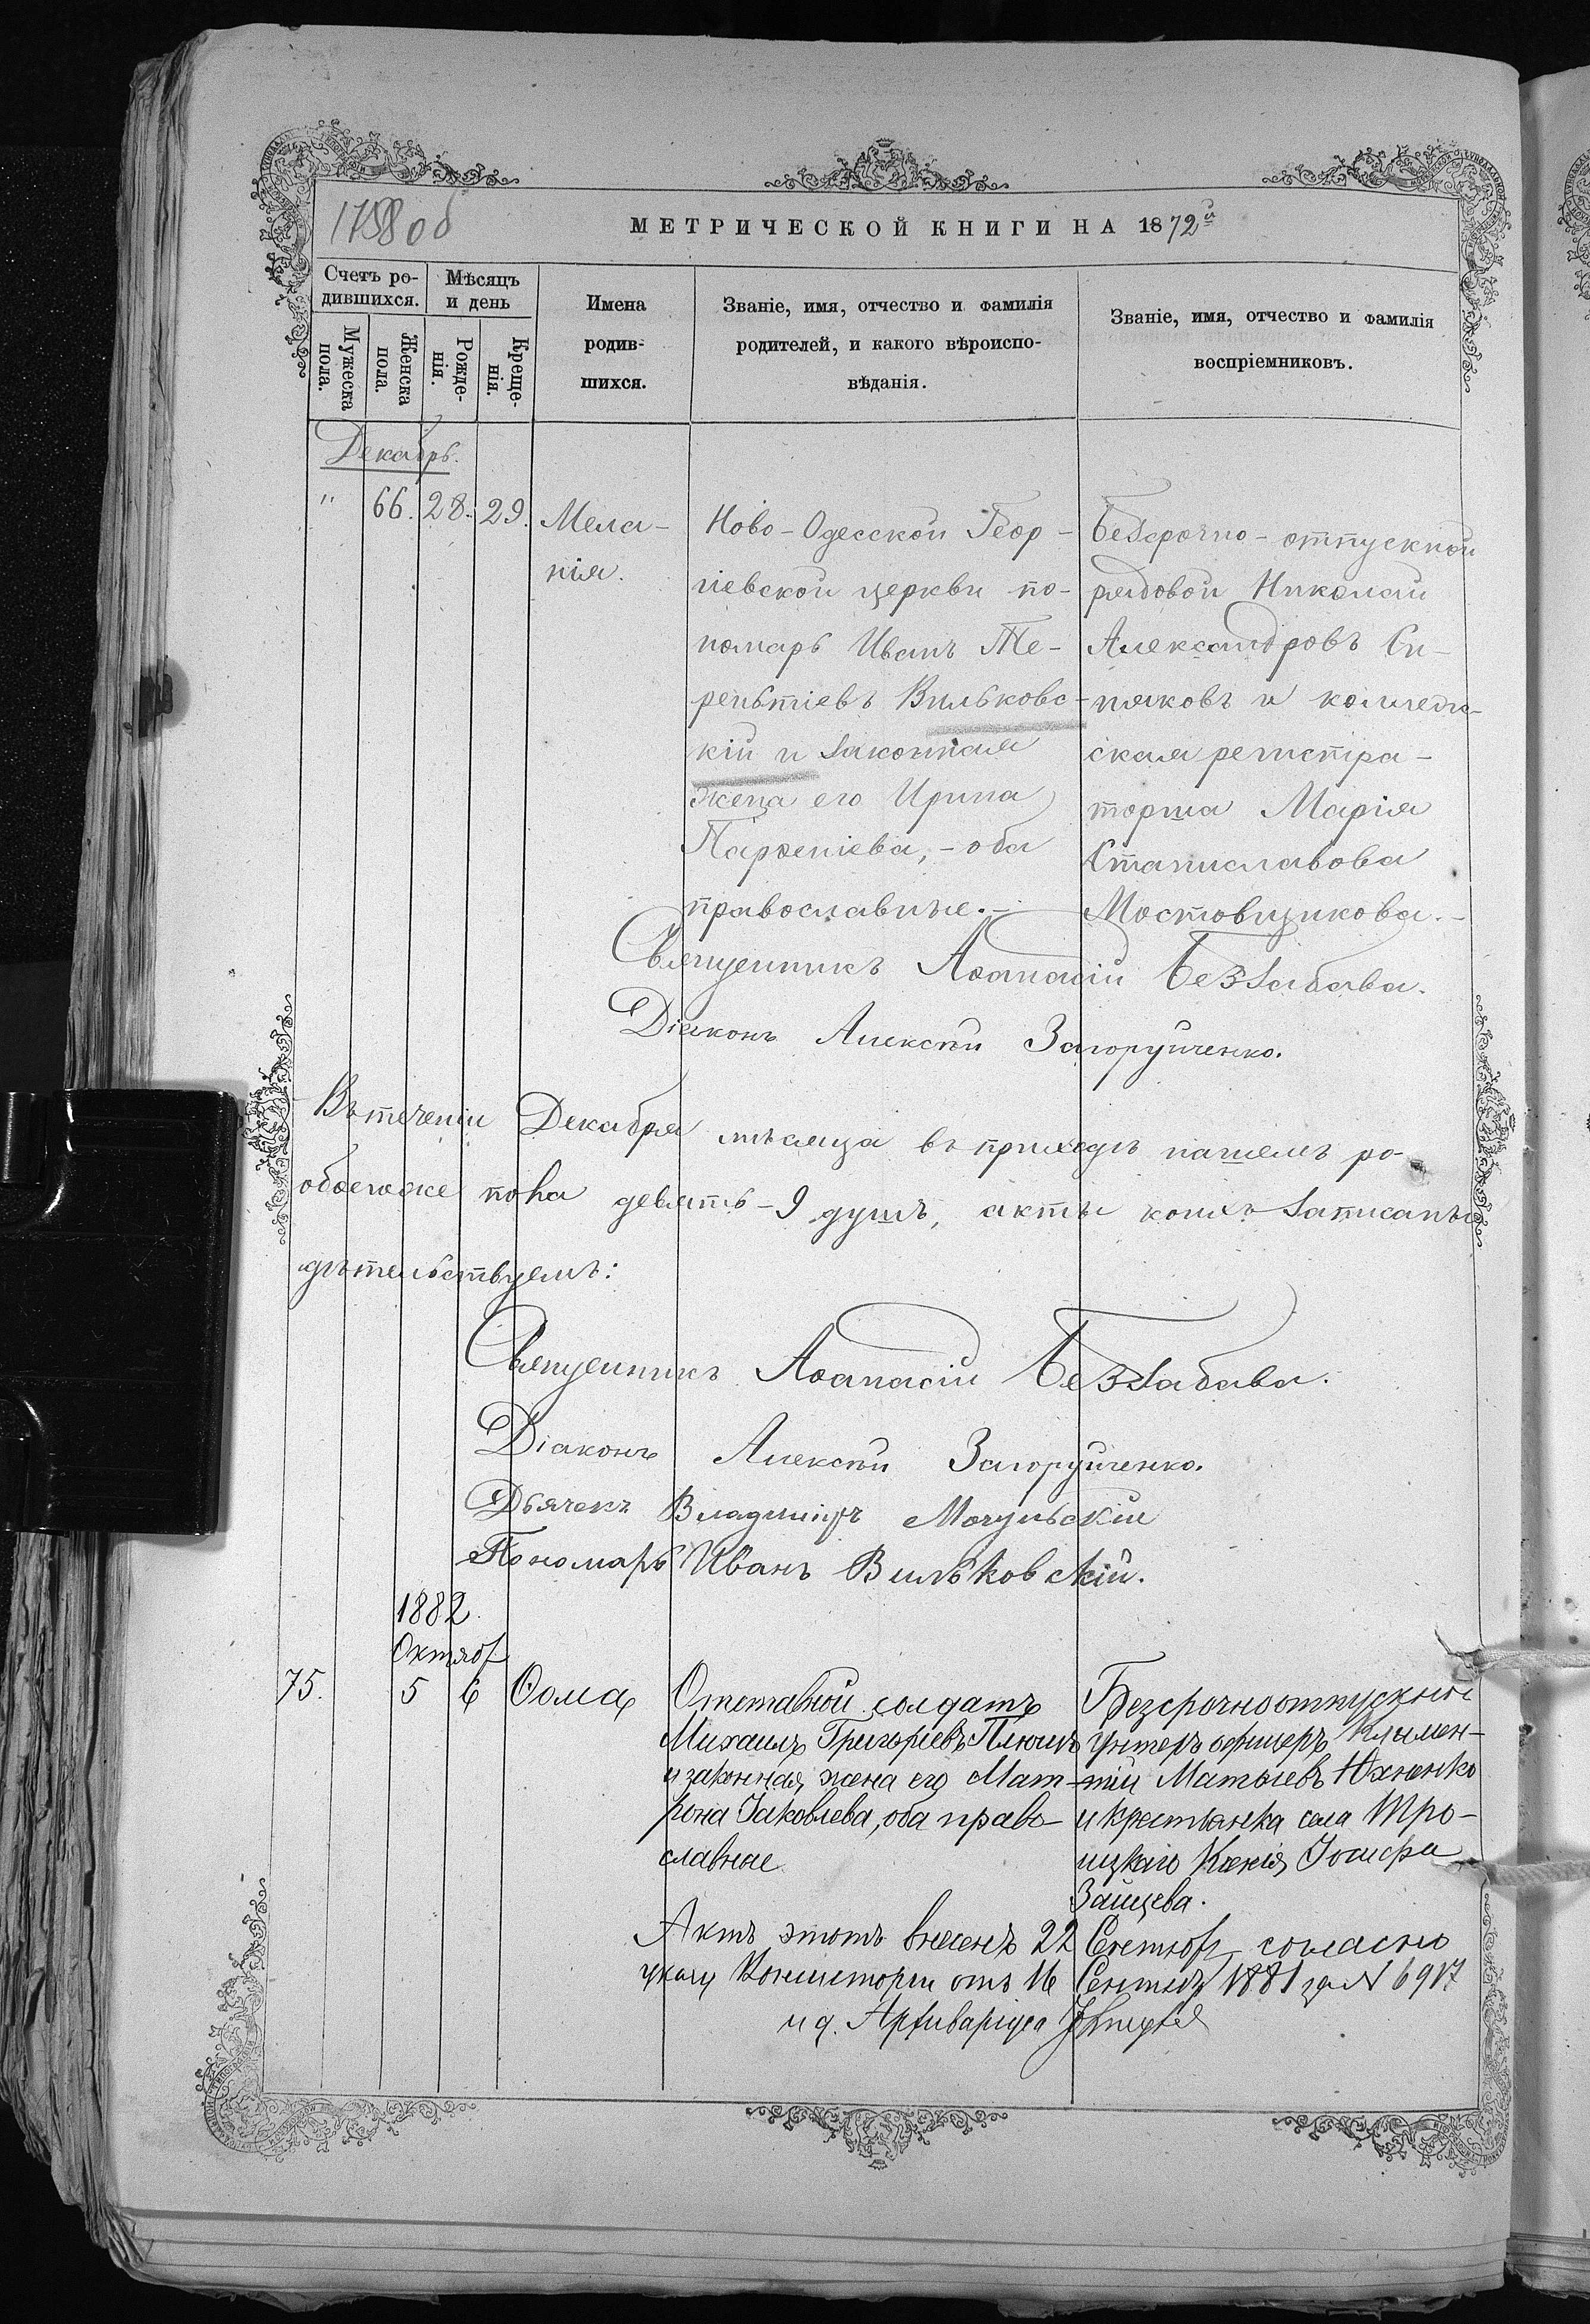 1758 об
МЕТРИЧЕСКОЙ КНИГИ НА 1872й
Счетъ ро-
дившихся.
Мѣсяцъ
и день
Мужеска
пола.
Женска
пола.
Рожде-
нія.
Креще-
нія.
Имена
родив-
шихся.
Званіе, имя, отчество и фамилія
родителей, и какого вѣроиспо-
вѣданія.
Званіе, имя, отчество и фамилія
воспріемниковъ.
Декабрь.
" 66. 28. 29.
Мела-
нія.
Ново-Одесской Геор-
гіевской церкви по-
номарь Иванъ Те-
рентіевъ Вильковс-
кій и законная
жена его Ирина
Парѳеніева, - оба
православные.-
Безсрочно-отпускной
рядовой Николай
Александровъ Си-
няковъ и коллежи-
ская регистра-
торша Марія
Станиславова
Мостовщикова.-
Священникъ Аѳанасій Беззабава.
Діаконъ Алексѣй Загоруйченко.
Въ теченіи Декабря мѣсяца въ приходѣ нашемъ ро-
обоего же пола девять-9 душъ, акты коихъ записаны
дѣтельствуемъ:
Священникъ Аѳанасій Беззабава.
Діаконъ Алексѣй Загоруйченко.
Дьячекъ Владиміръ Мочульскій
Пономарь Иванъ Вильковскій.
1882
Октяб
75. 5 6 Ѳома
Отставной солдатъ
Михаилъ Григорьевъ
и законная жена его Мат-
рона Іаковлева, оба право-
славные
Безсрочноотпускной
унтеръ офицеръ Климен-
тій Матвіевъ Юхненко
и крестьянка села Тро-
ицкаго Ксенія Іосифа
Зайцева.
Актъ этотъ внесенъ 22 согласно
указу Консисторіи отъ 16 1881 за № 6917
и д. Архиваріуса